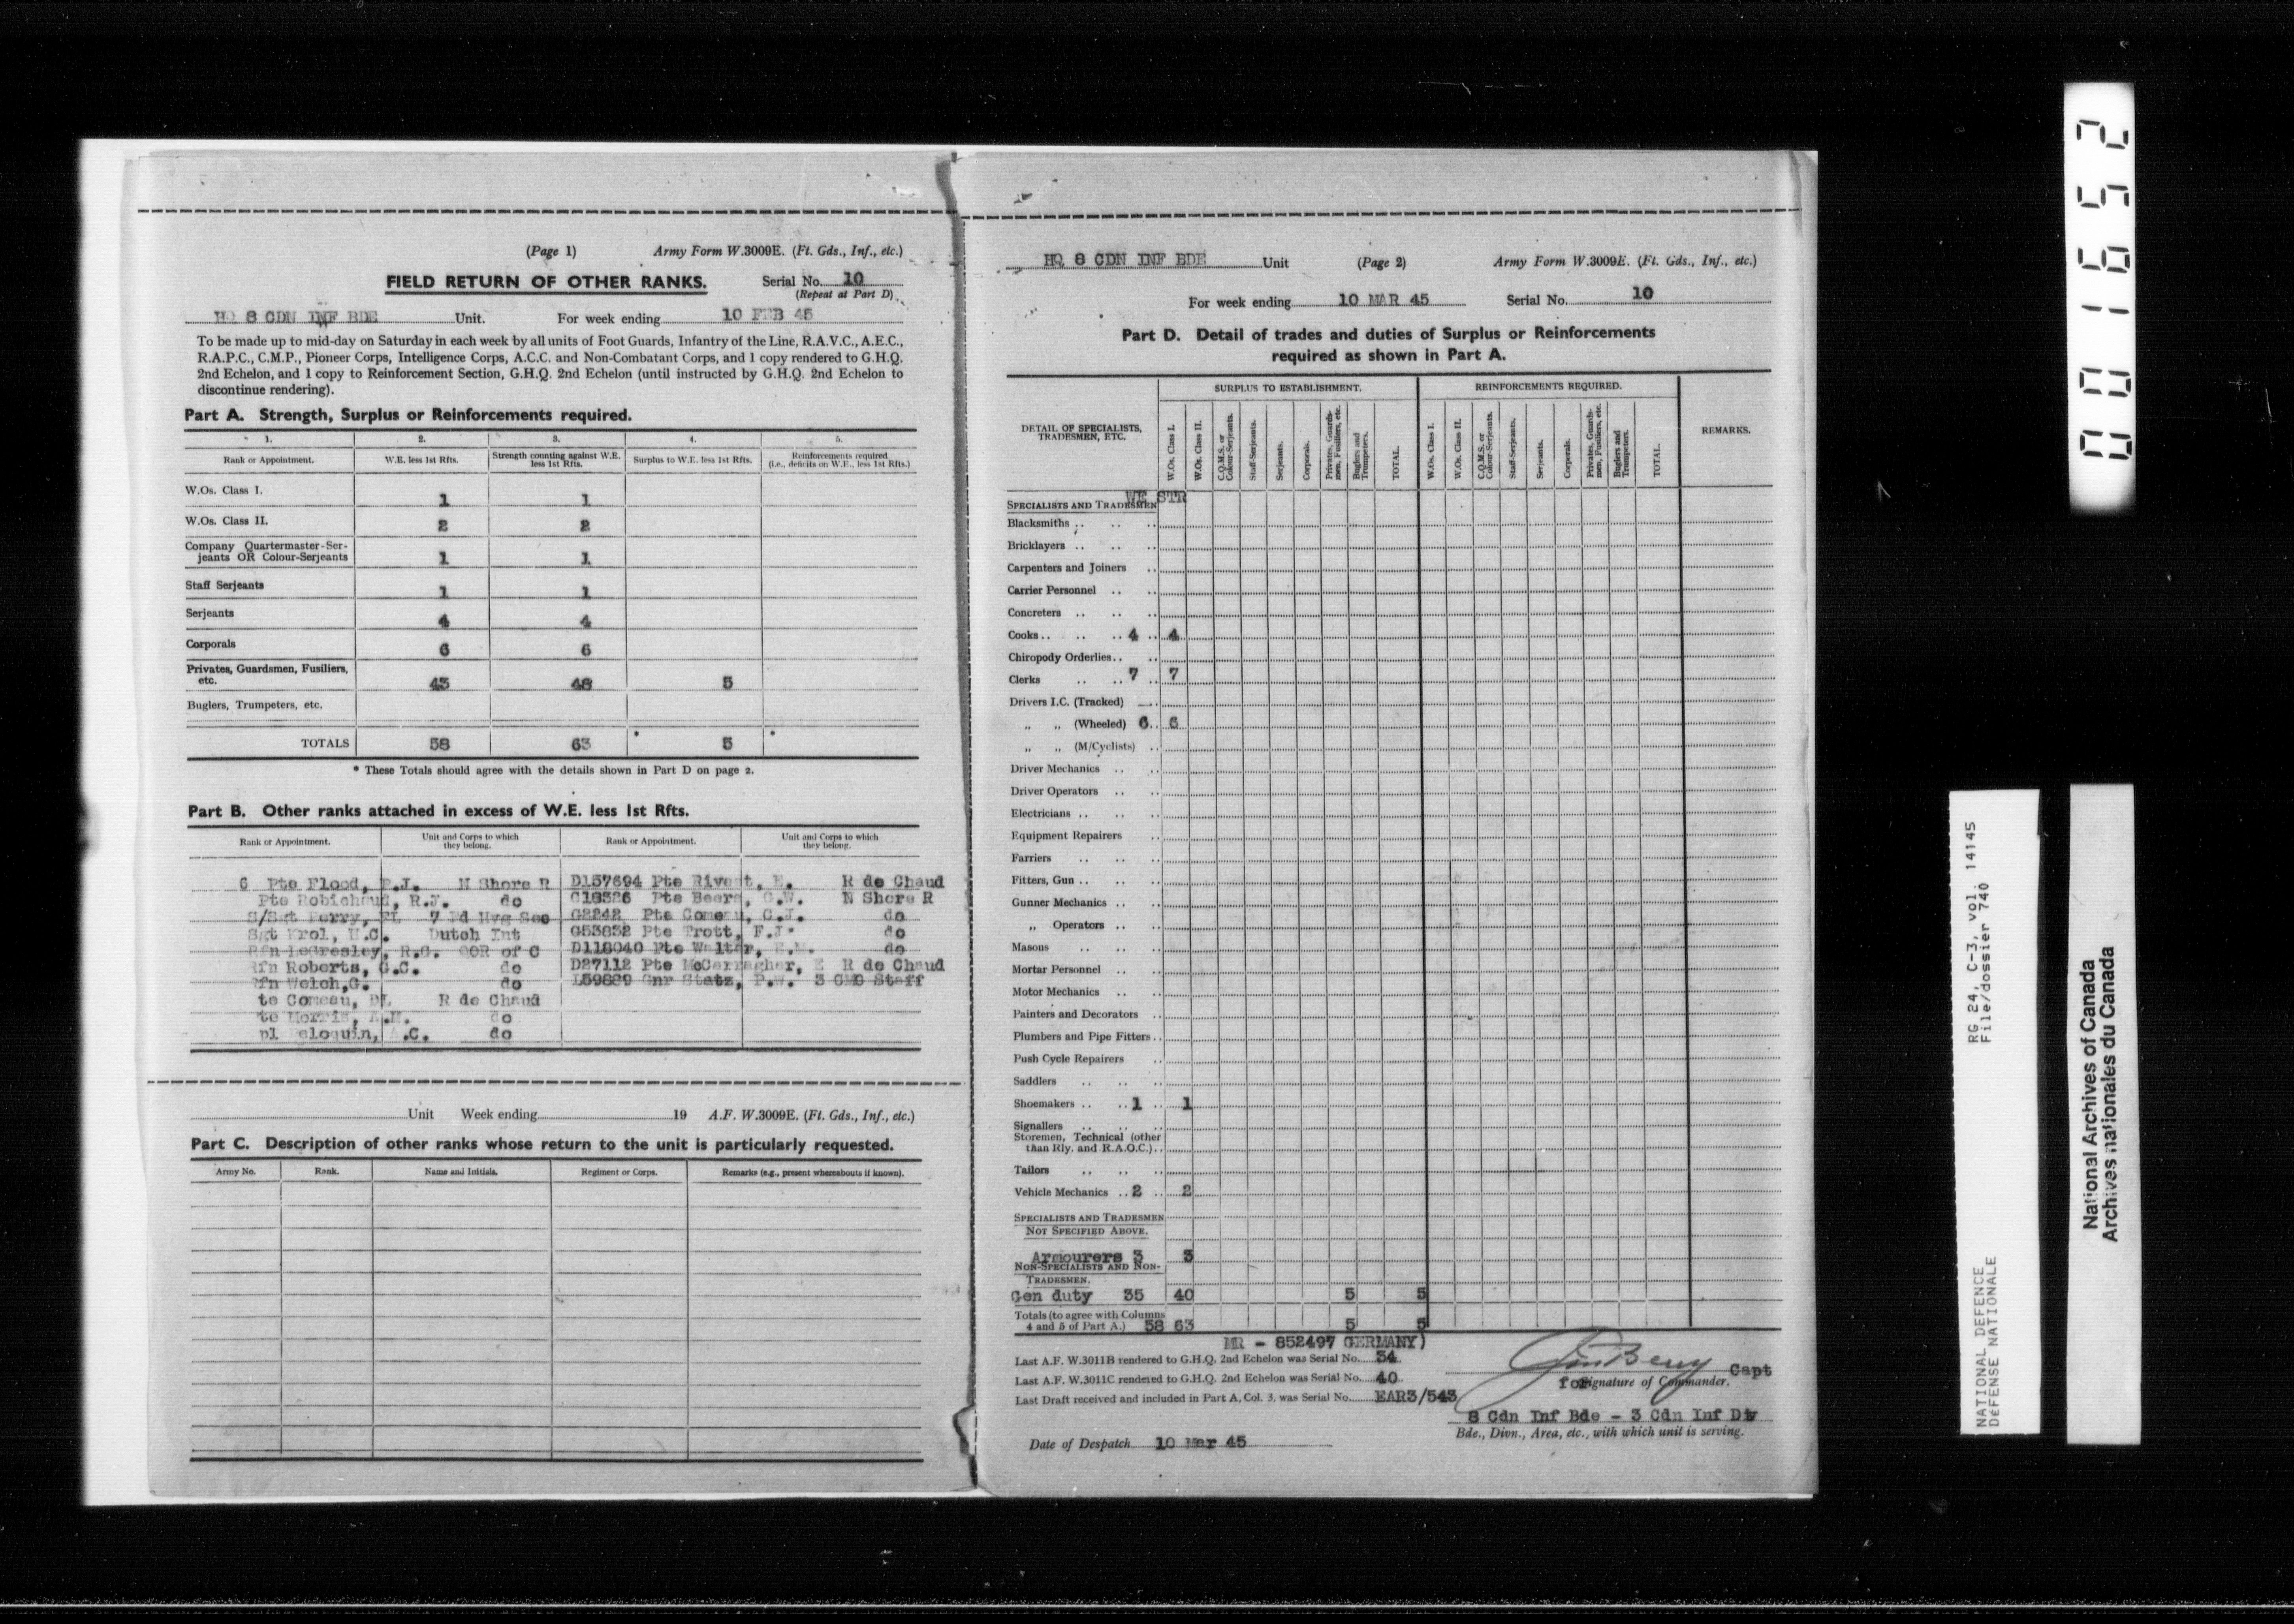 (Page 1) Army Form W.3009E. (Ft. Gds., Inf., etc.)
FIELD RETURN OF OTHER RANKS. Serial No. 10
(Repeat at Part D)
HQ 8 CDN INF BDE Unit. For week ending 10 FEB 45
To be made up to mid-day on Saturday in each week by all units of Foot Guards, Infantry of the Line, R.A.V.C., A.E.C.,
R.A.P.C., C.M.P., Pioneer Corps, Intelligence Corps, A.C.C. and Non-Combatant Corps, and 1 copy rendered to G.H.Q.
2nd Echelon, and 1 copy to Reinforcement Section, G.H.Q. 2nd Echelon (until instructed by G.H.Q. 2nd Echelon to
discontinue rendering).
Part A. Strength, Surplus or Reinforcements required.
1. 2. 3. 4. 5.
Rank or Appointment. W.E. less 1st Rfts. Strength counting against W.E. less 1st Rfts. Surplus to W.E. less 1st Rfts. Reinforcements required (i.e., deficits on W.E., less 1st Rfts.)
W.Os. Class I. 1 1
W.Os. Class II. 2 2
Company Quartermaster-Ser-
jeants OR Colour-Serjeants 1 1
Staff Serjeants 1 1
Serjeants 4 4
Corporals 6 6
Privates, Guardsmen, Fusiliers,
etc. 43 48 5
Buglers, Trumpeters, etc.
TOTALS 58 63 * 5 *
* These Totals should agree with the details shown in Part D on page 2.
Part B. Other ranks attached in excess of W.E. less 1st Rfts.
Rank or Appointment. Unit and Corps to which they belong. Rank or Appointment. Unit and Corps to which they belong.
G Pte Flood, P.J. N Shore R D157694 Pte Rivest, E. R de Chaud
Pte Robichaud, R.J. do G18326 Pte Beers, C.W. N Shore R
S/Sgt Perry, 7 Fd Hyg Sec G2242 Pte Comeau, C.J. do
Sgt Krol, H.C. Dutch Int G53832 Pte Trott, F.J. do
Rfn LeGresley, R.G. QOR of C D118040 Pte Walter, do
Rfn Roberts, G.C. do D27112 Pte McCarragher, E R de Chaud
Rfn Welch, G. do L59889 Gnr Statz, P.W. 3 CMC Staff
te Comeau, R de Chaud
te Morris, .M. do
pl eloquin, .C. do
Unit Week ending 19 A.F. W.3009E. (Ft. Gds., Inf., etc.)
Part C. Description of other ranks whose return to the unit is particularly requested.
Army No. Rank. Name and Initials. Regiment or Corps. Remarks (e.g., present whereabouts if known).
HQ 8 CDN INF BDE Unit (Page 2) Army Form W.3009E. (Ft. Gds., Inf., etc.)
For week ending 10 MAR 45 Serial No. 10
Part D. Detail of trades and duties of Surplus or Reinforcements
required as shown in Part A.
SURPLUS TO ESTABLISHMENT. REINFORCEMENTS REQUIRED.
DETAIL OF SPECIALISTS, TRADESMEN, ETC. W.Os. Class I. W.Os. Class II. C.Q.M.S. or Colour-Serjeants. Staff-Serjeants. Serjeants. Corporals. Privates, Guards-men, Fusiliers, etc. Buglers and Trumpeters. TOTAL. W.Os. Class I. W.Os. Class II. C.Q.M.S. or Colour-Serjeants. Staff-Serjeants. Serjeants. Corporals. Privates, Guards-men, Fusiliers, etc. Buglers and Trumpeters. TOTAL. REMARKS.
WE STR
SPECIALISTS AND TRADESMEN
Blacksmiths
Bricklayers
Carpenters and Joiners
Carrier Personnel
Concreters
Cooks 4 4
Chiropody Orderlies
Clerks 7 7
Drivers I.C. (Tracked)
,, ,, (Wheeled) 6 6
,, ,, (M/Cyclists)
Driver Mechanics
Driver Operators
Electricians
Equipment Repairers
Farriers
Fitters, Gun
Gunner Mechanics
,, Operators
Masons
Mortar Personnel
Motor Mechanics
Painters and Decorators
Plumbers and Pipe Fitters
Push Cycle Repairers
Saddlers
Shoemakers 1 1
Signallers
Storemen, Technical (other
than Rly. and R.A.O.C.)
Tailors
Vehicle Mechanics 2 2
SPECIALISTS AND TRADESMEN
NOT SPECIFIED ABOVE.
Armourers 3 3
NON-SPECIALISTS AND NON-
TRADESMEN.
Gen duty 35 40 5 5
Totals (to agree with Columns
4 and 5 of Part A.) 58 63 5 5
MR - 852497 GERMANY)
Last A.F. W.3011B rendered to G.H.Q. 2nd Echelon was Serial No. 34
Last A.F. W.3011C rendered to G.H.Q. 2nd Echelon was Serial No. 40
Last Draft received and included in Part A, Col. 3, was Serial No. EAR3/543
Capt
for Signature of Commander.
8 Cdn Inf Bde - 3 Cdn Inf Div
Bde., Divn., Area, etc., with which unit is serving.
Date of Despatch 10 Mar 45
001652
RG 24, C-3, vol. 14145
File/dossier 740
NATIONAL DEFENCE
DÉFENSE NATIONALE
National Archives of Canada
Archives nationales du Canada